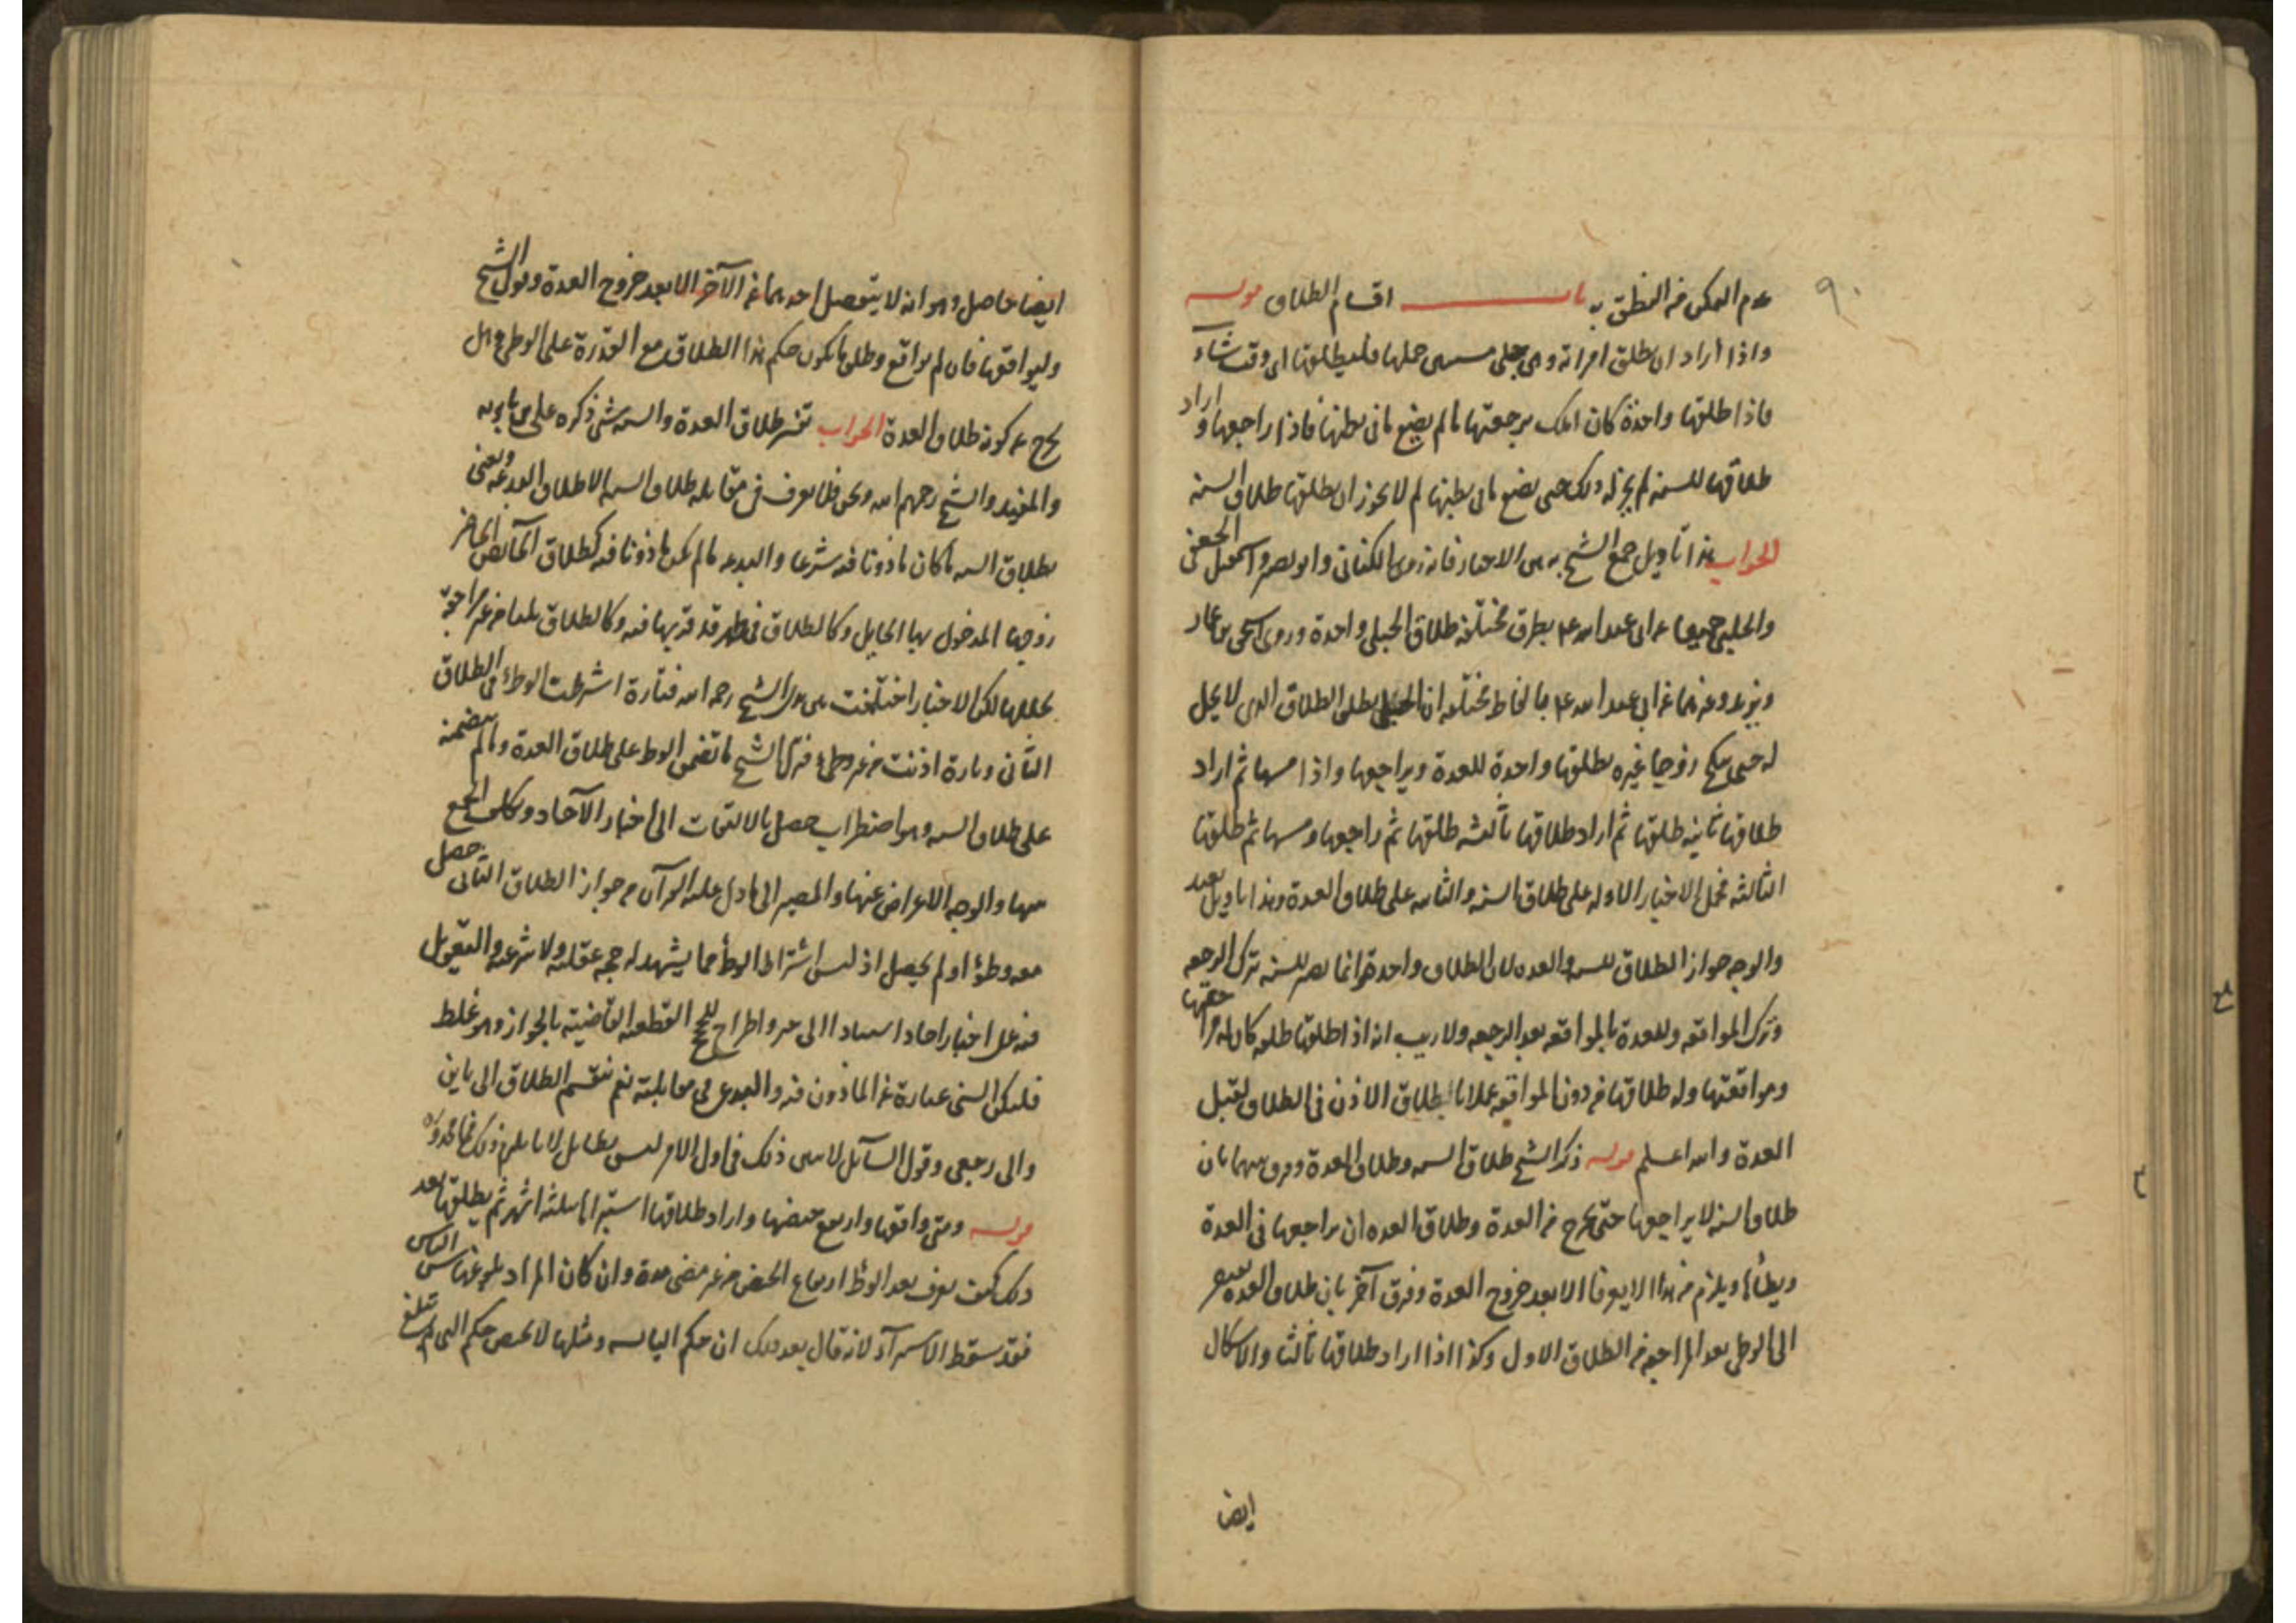 ٩٠
عدم التمكن من النطق به باب اقسام الطلاق قوله
واذا اراد ان يطلق امراته وهي حبلى مستبين حملها فليطلقها اي وقت شاء
فاذا طلقها واحدة كان املك برجعتها ما لم يضع ما في بطنها فاذا راجعها و اراد
طلاقها للسنة لم يجز له ذلك حتى يضع ما في بطنها لم لا يجوز ان يطلقها طلاق السنة
الجواب هذا تاويل جمع الشيخ به بين الاخبار فانه روى الكناني وابو بصير واسمعيل الجعفي
والحلبي جميعا عن ابي عبد الله ع بطرق مختلفة طلاق الحبلى واحدة وروى اسحق بن عمار
عن ابي عبد الله ع بالفاظ مختلفه ان الحبلى يطلق الطلاق الذي لا يحل
له حتى ينكح زوجا غيره يطلقها واحدة للعدة ويراجعها واذا مسها ثم اراد
طلاقها ثانيه طلقها ثم اراد طلاقها ثالثه طلقها ثم راجعها ومسها ثم طلقها
الثالثه فحمل الاخبار الاوله على طلاق السنه والثانيه على طلاق العدة وهذا تاويل بعيد
والوجه جواز الطلاق للسنه والعده لان الطلاق واحد وانما يصير للسنه بترك الرجعه
وترك المواقعه وللعدة بالمواقعه بعد الرجعه ولا ريب انه اذا طلقها طلقه كان له مراجعتها
ومواقعتها وله طلاقها من دون المواقعه عملا باطلاق الاذن في الطلاق لقبل
العدة والله اعلم قوله ذكر الشيخ طلاق السنه وطلاق العدة وفرق بينهما بان
طلاق السنه لا يراجعها حتى يخرج من العدة وطلاق العده ان يراجعها في العدة
ويطأها ويلزم من هذا الا يعرفا الا بعد خروج العدة وفرق آخر بان طلاق العده يفتقر
الى الوطي بعد المراجعه من الطلاق الاول وكذا اذا اراد طلاقها ثالثا والاشكال
ايضا
ايضا حاصل وهو انه لا يتفصل احدهما عن الآخر الا بعد خروج العدة وقول الشيخ
وليواقعها فان لم يواقع وطلق ما يكون حكم هذا الطلاق مع القدرة على الوطي هل
يخرج عن كونه طلاق العدة الجواب تفسير طلاق العدة والسنه شئ ذكره علي بن بابويه
والمفيد والشيخ رحمهم الله ونحن فلا نعرف في مقابله طلاق السنه الا طلاق البدعه ونعني
بطلاق السنه ما كان ماذونا فيه شرعا والبدعه ما لم يكن ماذونا فيه كطلاق الحائض الحاضر
زوجها المدخول بها الحايل وكالطلاق في طهر قد قربها فيه وكالطلاق ثلثا من غير مراجعة
تخللها لكن الاخبار اختلفت بين يدي الشيخ رحمه الله فتارة اشترطت الوطء في الطلاق
الثاني وتارة اذنت من غير وطء فنزل الشيخ ما تضمن الوطء على طلاق العدة وما لم يتضمنه
على طلاق السنه وهو اضطراب حصل بالالتفات الى اخبار الآحاد وتكلف الجمع
بينها والوجه الاعراض عنها والمصير الى ما دل عليه القرآن من جواز الطلاق الثاني حصل
معه وطؤ او لم يحصل اذ ليس اشتراط الوطء مما يشهد له حجه عقليه ولا شرعيه والتعويل
فيه على اخبار احاد استنادا الى خبر واطراح للحجج القطعيه القاضية بالجواز وهو غلط
فليكن السني عبارة عن الماذون فيه والبدعي في مقابلته ثم نقسم الطلاق الى باين
والى رجعي وقول السائل لا يتبين ذلك في اول الامر ليس بطائل لا ما يلزم من ذلك
قوله ومتى واقعها وارتفع حيضها واراد طلاقها استبراها بثلثه اشهر ثم يطلقها بعد
ذلك كيف يعرف بعد الوطء ارتفاع الحيض من غير مضي مدة وان كان المراد بلوغها سن الياس
فقد سقط الاستبراء لانه قال بعد ذلك ان حكم اليائسه ومثلها لا تحيض حكم التي لم تبلغ